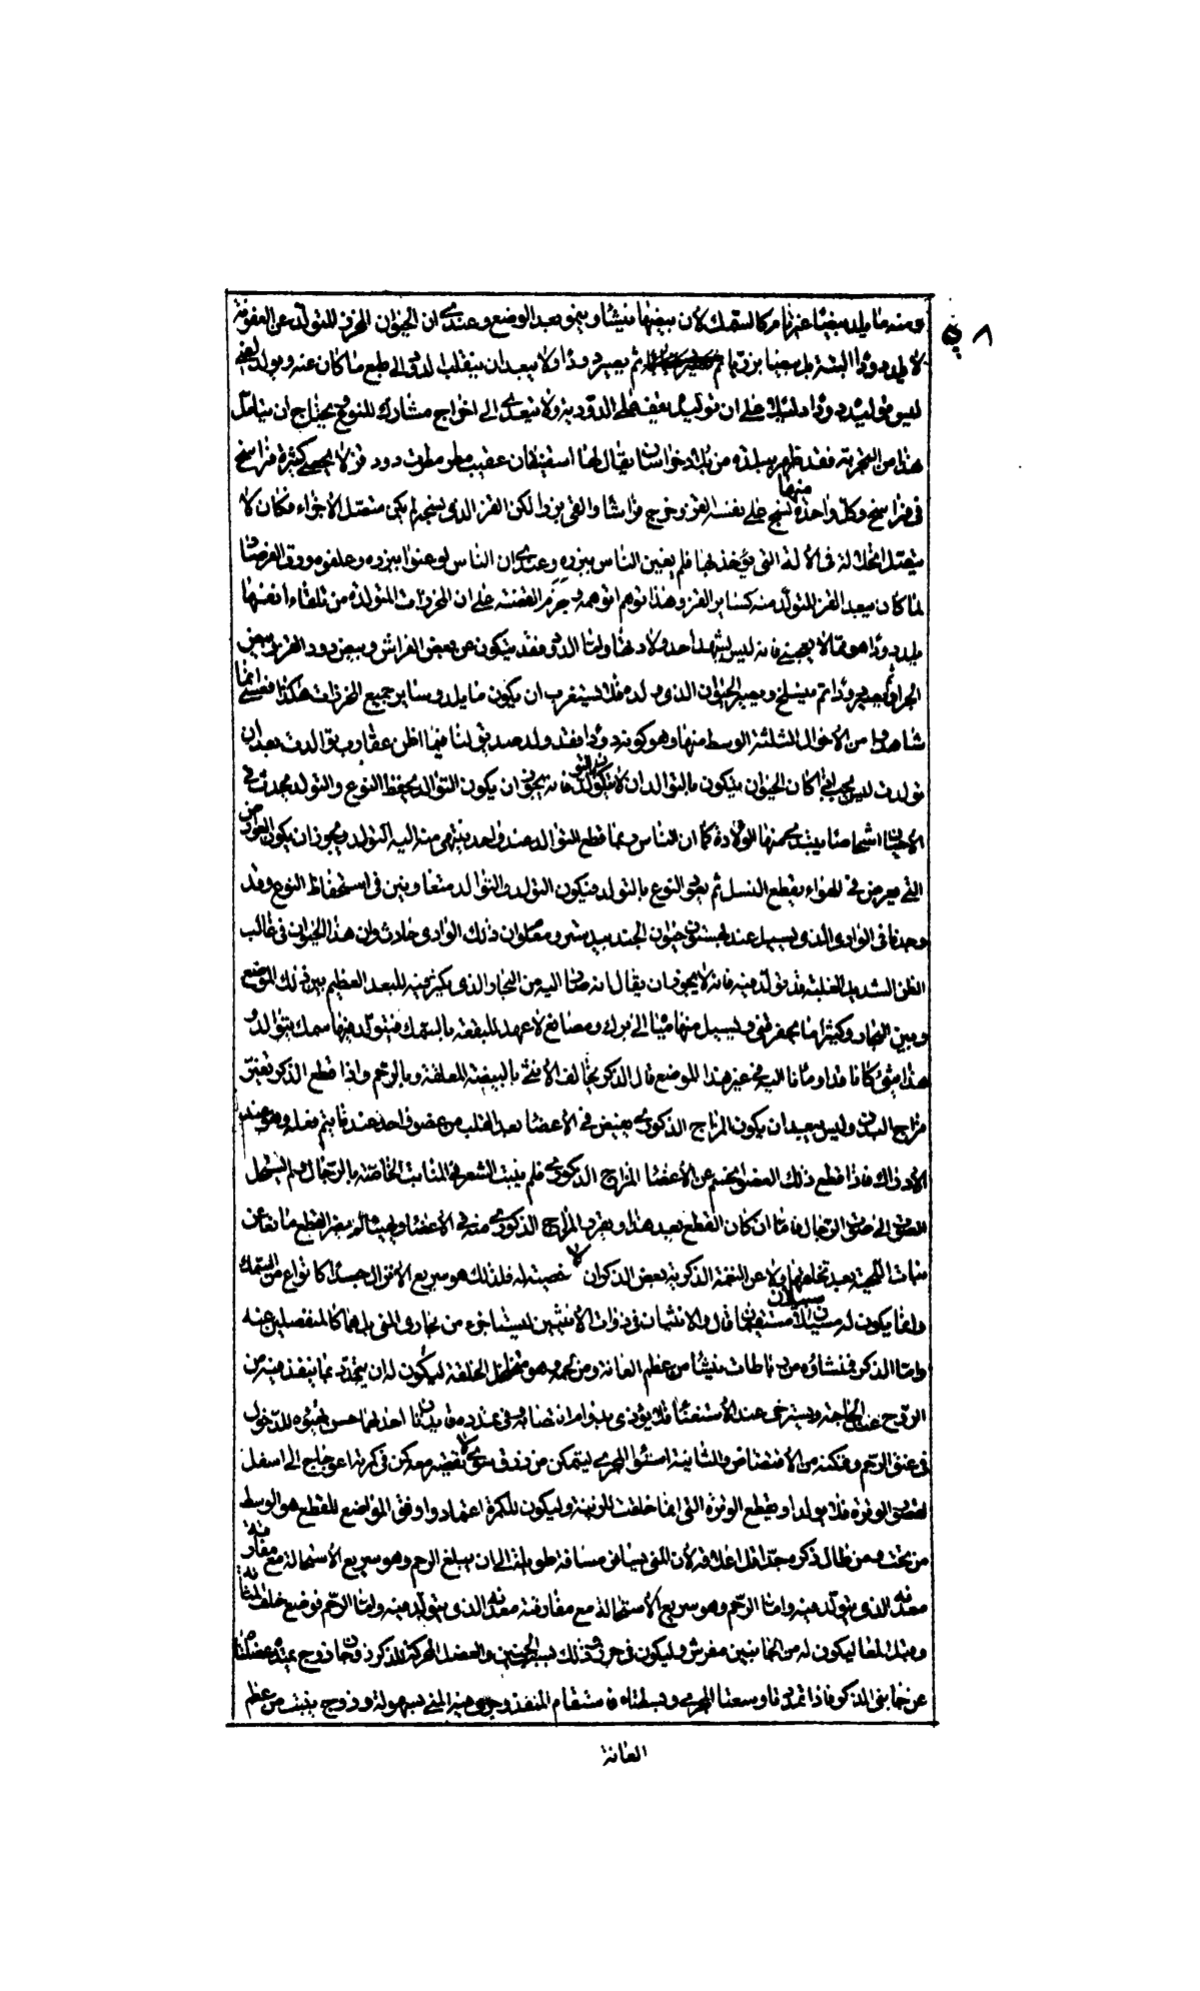 ومنه ما يلد بيضا غير تام كالسمك لان بيضها ينشأ وينمو بعد الوضع وعندى ان الحيوان المحرز المتولد عن العفونة
لا يلد دودا البتة بل بيضا بزريا ثم يصير دودا ولا يبعد ان ينقلب الدود الى طبع ما كان عنه ويولد
ليس توليده دودا دليلا على ان توليده يقف على الدودية ولا يتعدى الى اخراج مشارك للنوع يحتاج ان يتامل
هذا من التجربة فقد ظهر ببلدة من بلاد خراسان يقال لها اسفينقان عقيب مطر دود قز لا يحصى كثرة فراسخ
فى فراسخ وكل واحدة منها تنسج على نفسه القز وخرج فراشا والقى بزرا لكن القز الذى ينسجه لم يكن متصل الاجزاء فكان لا
يتصل انحلاله فى الآلة التى يتخذ لها فلم يعين الناس ببزره وعندى ان الناس لو عنوا ببزره وعلفوه ورق الفرصاد
لما كان يبعد القز المتولد منه كسائر القز وهذا توهم اتوهمه وجزم القضية على ان المحرزات المتولدة من تلقاء انفسها
يلد دودا هو مما لا يعجبنى فانه ليس يشهد احد ولادها واما الدود فقد يتكون عن بعض الفراش وبيض دود القز وبيض
الجراد ثم يصير دودا ثم ينسلخ ويصير الحيوان الذى ولد مثله فيقرب ان يكون ما يلد وسائر جميع المحرزات هكذا فعسى انما
شاهدوا من الاحوال الثلثة الوسط منها وهو كونه دودا فقد ولد صديق لنا فيما اظن عقارب توالدت بعد ان
تولدت ليس يجب اذا كان الحيوان يتكون بالتوالد ان لا يتكون بالتولد فانه يجوز ان يكون التوالد يحفظ النوع والتولد يحدث فى
الاحيان اشخاصا يبتدى منها الولادة كما ان الناس ربما قطع التوالد عند احد ينتهى منه اليه التولد ويجوز ان يكون العوارض
التى يعرض فى الهواء يقطع النسل ثم يعود النوع بالتولد فيكون التولد والتوالد متعاونين فى استحفاظ النوع وقد
وجدنا فى الوادى الذى يسيل عند بهستون حيوان الجندبيدستر ومعلوم ان ذلك الوادى حادث وان هذا الحيوان فى غالب
الظن الشديد الغلبة قد تولد فيه فانه لا يجوز ان يقال انه صار اليه من البحار الذى يكثر فيه للبعد العظيم بين ذلك الموضع
وبين البحار وكثيرا ما يحفر قنى ويسيل منها مياه الى برك ومصانع لا عهد للبقعة بالسمك فيتولد فيها سمك يتوالد و
هذا شئ كانا قد اومأنا اليه فى غير هذا الموضع قال الذكر يخالف الانثى بالبيضة المعلقة وبالرحم واذا قطع الذكر تغير
مزاج البدن وليس ببعيد ان يكون المزاج الذكورى يفيض فى الاعضاء بعد القلب من عضو واحد عند ما يتم فعله وهو عند
الادراك فاذا قطع ذلك العضو انحسم عن الاعضاء المزاج الذكورى فلم ينبت الشعر فى المنابت الخاصة بالرجال ولم يستحل
الصوت الى صوت الرجال فاما ان كان القطع بعد هذا وتقرر المزاج الذكورى منه فى الاعضاء وهيئاته لم يضر القطع مانعا عن
نبات اللحية بعد تخلقها ولا عن النغمة الذكورية بعض الذكران لا خصية له فلذلك هو سريع الانزال جدا كانواع من السمك
وانما يكون له سبيلان مستقيمان قال والانثيان فى ذوات الانثيين ليستا جزء من مجارى المنى بل هما كالمنفصلين عنه
واما الذكر فمنشاؤه من رباطات منشا من عظم العانة ومن لحم وهو متخلخل الخلقة ليكون له ان يتمدد بما ينفذ فيه من
الروح عند الحاجة ويسترخى عند الاستغناء فلا يؤذى بدوام انتصابه وفى تمدده فائدتان احدهما حسن تهيؤه للدخول
فى عنق الرحم وتمكنه من الافتضاض والثانية استواء المجرى ليتمكن من زرق منى لا تقبضه معه كمن فى كمرته اعوجاج الى اسفل
لقصر الوترة فلا يولد او يقطع الوترة التى انما خلقت للزينة وليكون للكمرة اعتماد واوفق المواضع للقطع هو الوسط
من تحت ومن طال ذكره جدا قل اعلاقه لان المنى يسافر مسافة طويلة الى ان يبلغ الرحم وهو سريع الاستحالة مع مفارقة
معدنه الذى يتولد فيه واما الرحم وهو سريع الاستحالة مع مفارقة معدنه الذى يتولد فيه واما الرحم فوضع خلف المثانة
وقبل المعا ليكون له من الجانبين مفرش وليكون فى حرز وذلك بسبب الجنين والعضل المحركة للذكر زوجان زوج يمتد عضلتاه
عن جانبى الذكر فاذا تمددتا وسعتا المجرى وبسطتاه فاستقام المنفذ وجرى فيه المنى بسهولة وزوج ينبت من عظم
العانة
٨